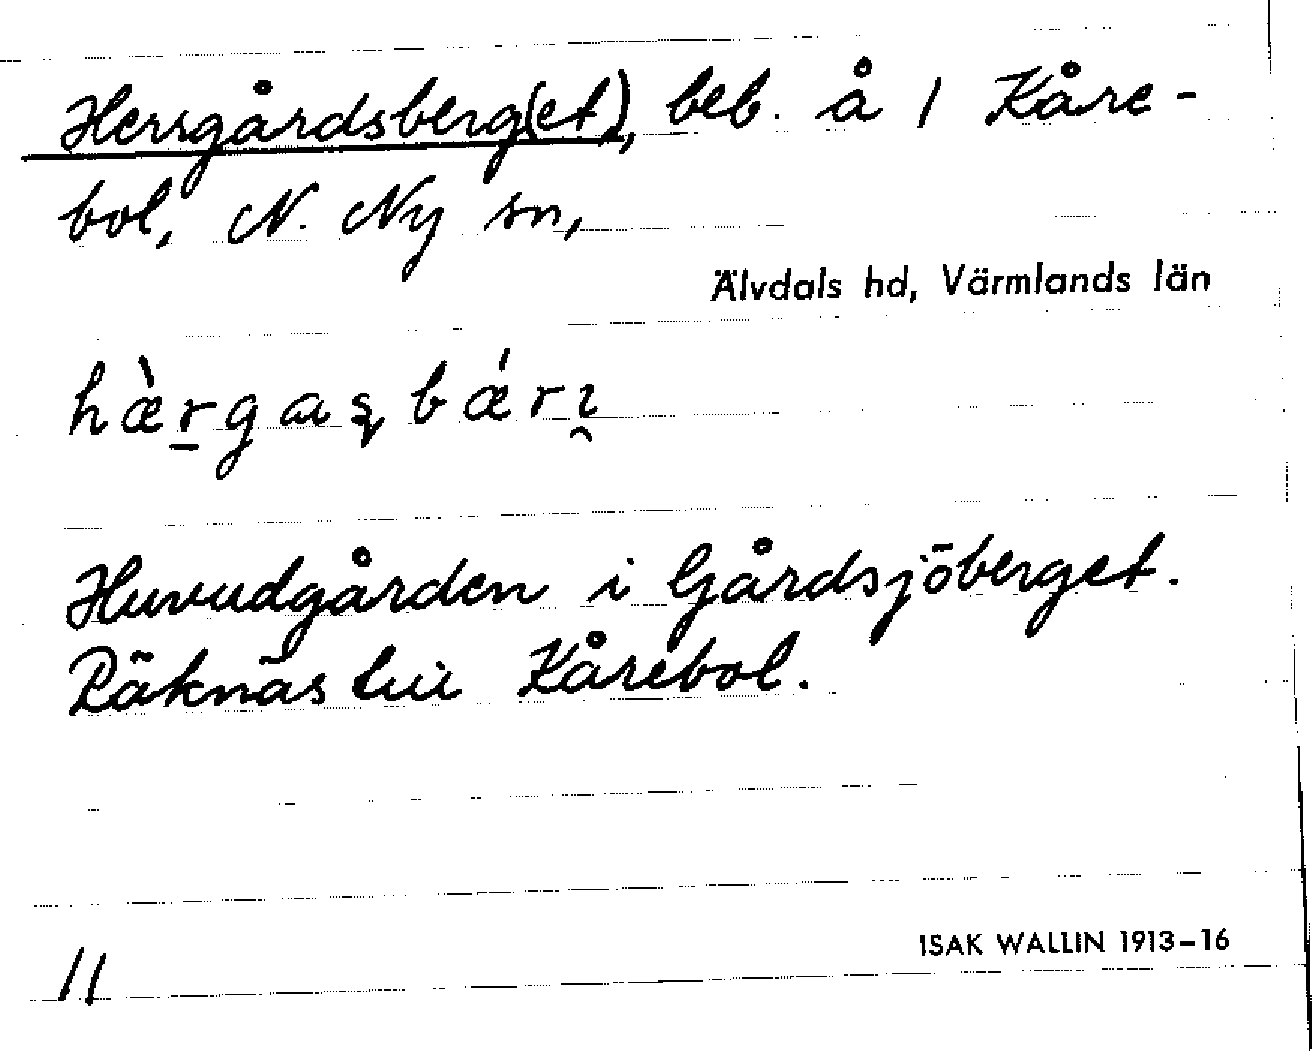 Herrgårdsberg(et), beb. å 1 Kåre-
bol, N. Ny sn,
Älvdals hd, Värmlands län
hæ̀r̲gaʂbǽrı̯
Huvudgården i Gårdsjöberget.
Räknas till Kårebol.
11
ISAK WALLIN 1913–16